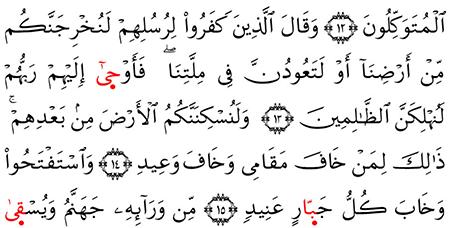 ٱلْمُتَوَكِّلُونَ ﴿١٢﴾ وَقَالَ ٱلَّذِينَ كَفَرُوا۟ لِرُسُلِهِمْ لَنُخْرِجَنَّكُم
مِّنْ أَرْضِنَآ أَوْ لَتَعُودُنَّ فِى مِلَّتِنَا ۖ فَأَوْحَىٰٓ إِلَيْهِمْ رَبُّهُمْ
لَنُهْلِكَنَّ ٱلظَّـٰلِمِينَ ﴿١٣﴾ وَلَنُسْكِنَنَّكُمُ ٱلْأَرْضَ مِنۢ بَعْدِهِمْ ۚ
ذَٰلِكَ لِمَنْ خَافَ مَقَامِى وَخَافَ وَعِيدِ ﴿١٤﴾ وَٱسْتَفْتَحُوا۟
وَخَابَ كُلُّ جَبَّارٍ عَنِيدٍ ﴿١٥﴾ مِّن وَرَآئِهِۦ جَهَنَّمُ وَيُسْقَىٰ